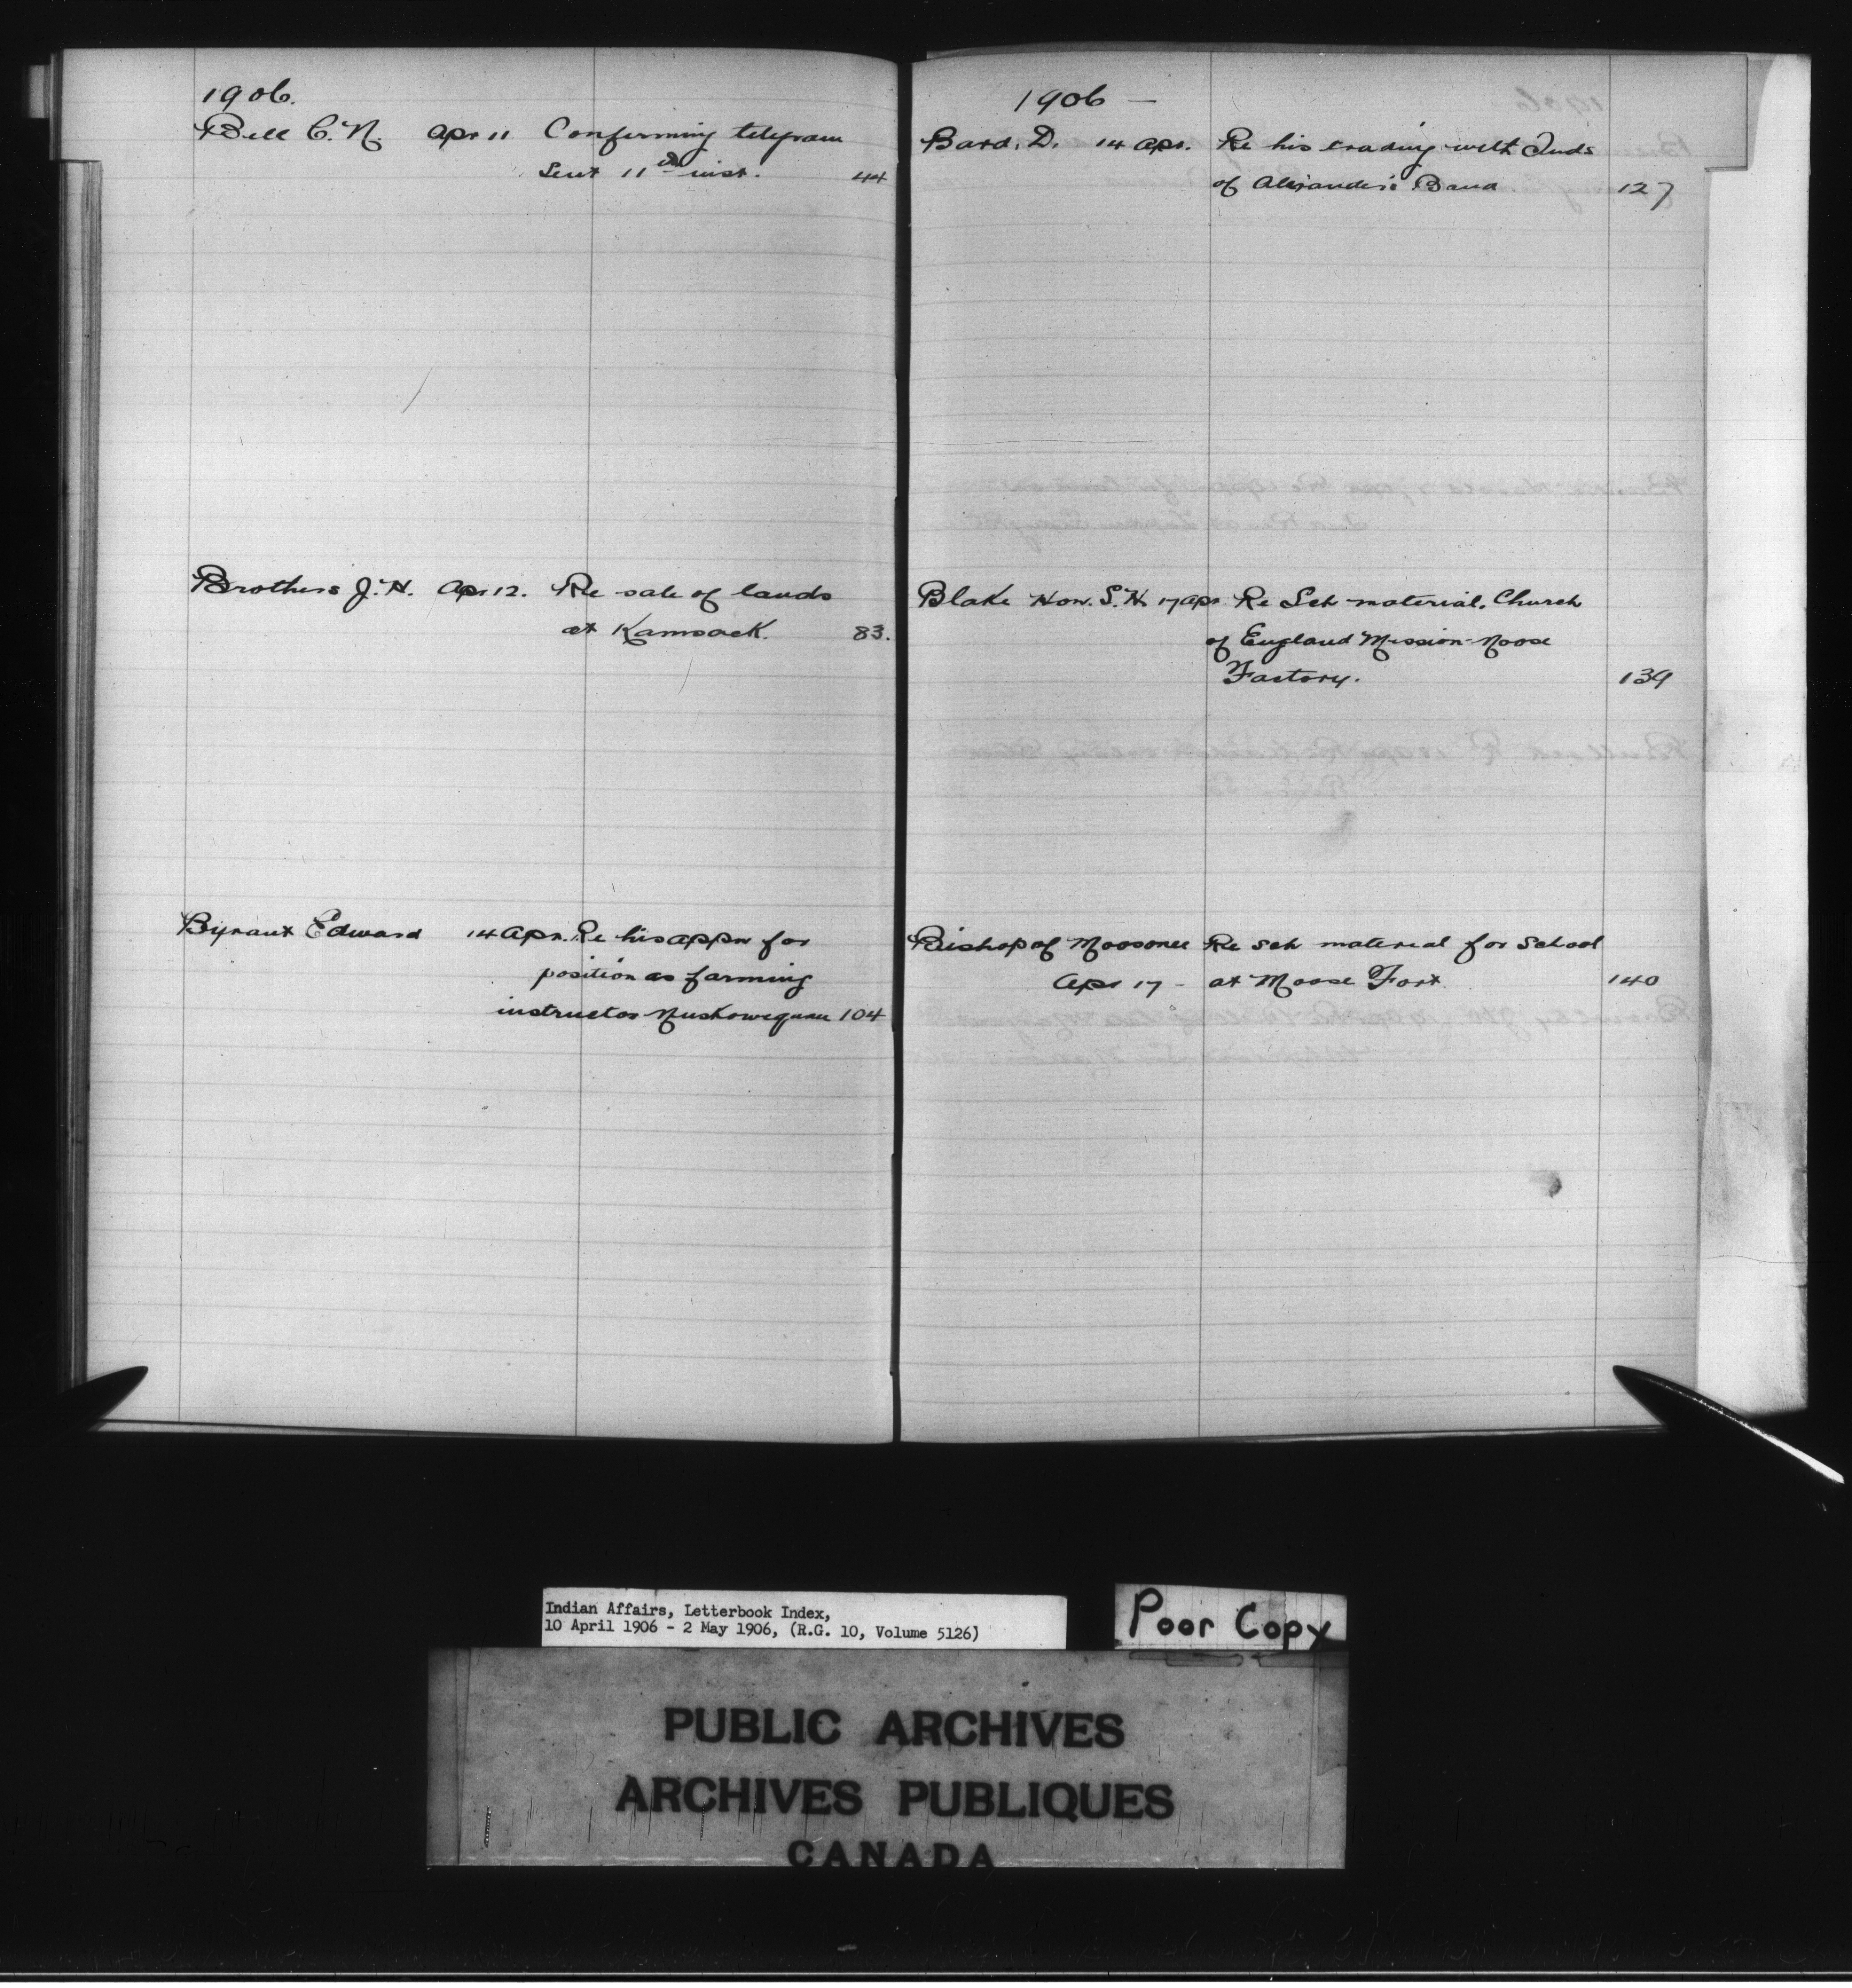 1906.
Bell C. N. Apr 11 Confirming telegram
Sent 11th inst. 44
Brothers J. H. Apr 12. Re sale of lands
at Kamsack. 83.
Byrant Edward 14 Apr. Re his appn for
position as farming
instructor Muskowequan 104
1906 —
Bard. D. 14 Apr. Re his trading with Inds
of Alexander's Band 127
Blake Hon. S. H. 17 Apr Re Sch material. Church
of England Mission - Moose
Factory. 139
Bishop of Moosonee Re sch material for School
Apr 17 - at Moose Fort 140
Indian Affairs, Letterbook Index,
10 April 1906 - 2 May 1906, (R.G. 10, Volume 5126)
Poor Copy
PUBLIC ARCHIVES
ARCHIVES PUBLIQUES
CANADA